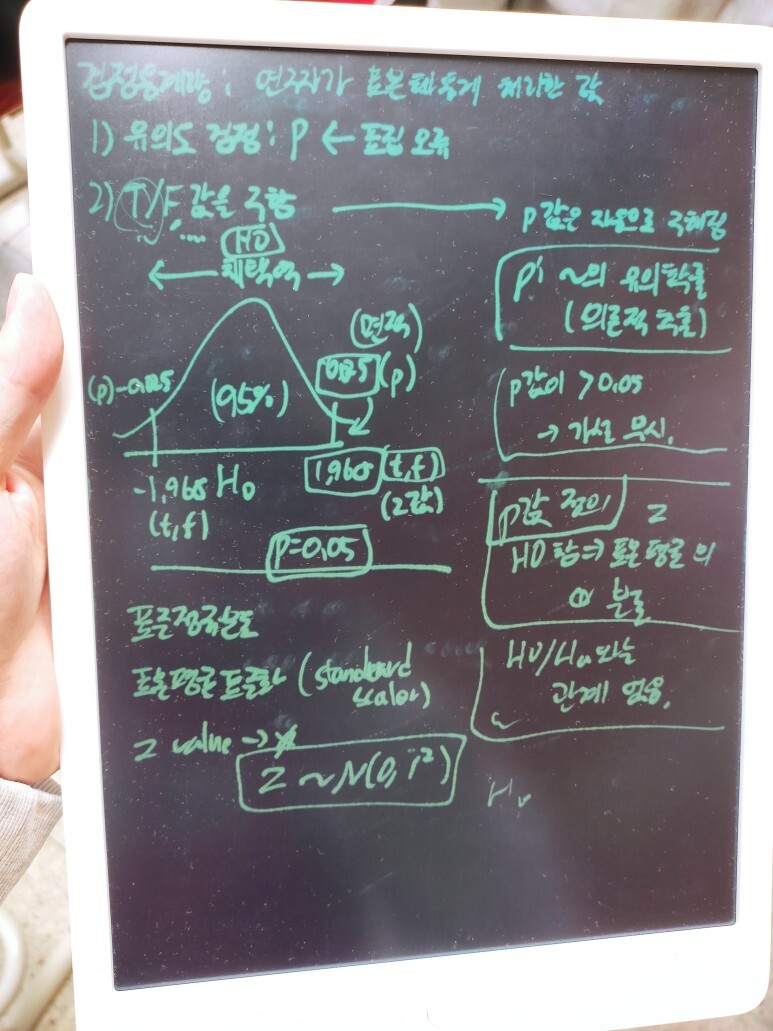 검정통계량 : 연구자가 표본 처리한 값
1) 유의도 검정 : P ← 표집 오류
2) T/F 값을 구함 → P 값은 자동으로 구해짐
H0
채택역
(면적)
(P)
(p) -0.025
(95%)
-1,965 H0
1,965 (t, f)
(t, f)
(Z값)
P=0.05
P: ~의 유의확률
p값이 > 0.05
→ 가설 무시.
P값 정의
H0 표본 평균의
분포
H0/Ha 와는
관계 없음.
표준정규분포
표본평균 표준화 (standard
scalor)
Z value →
Z ~ N(0, 1²)